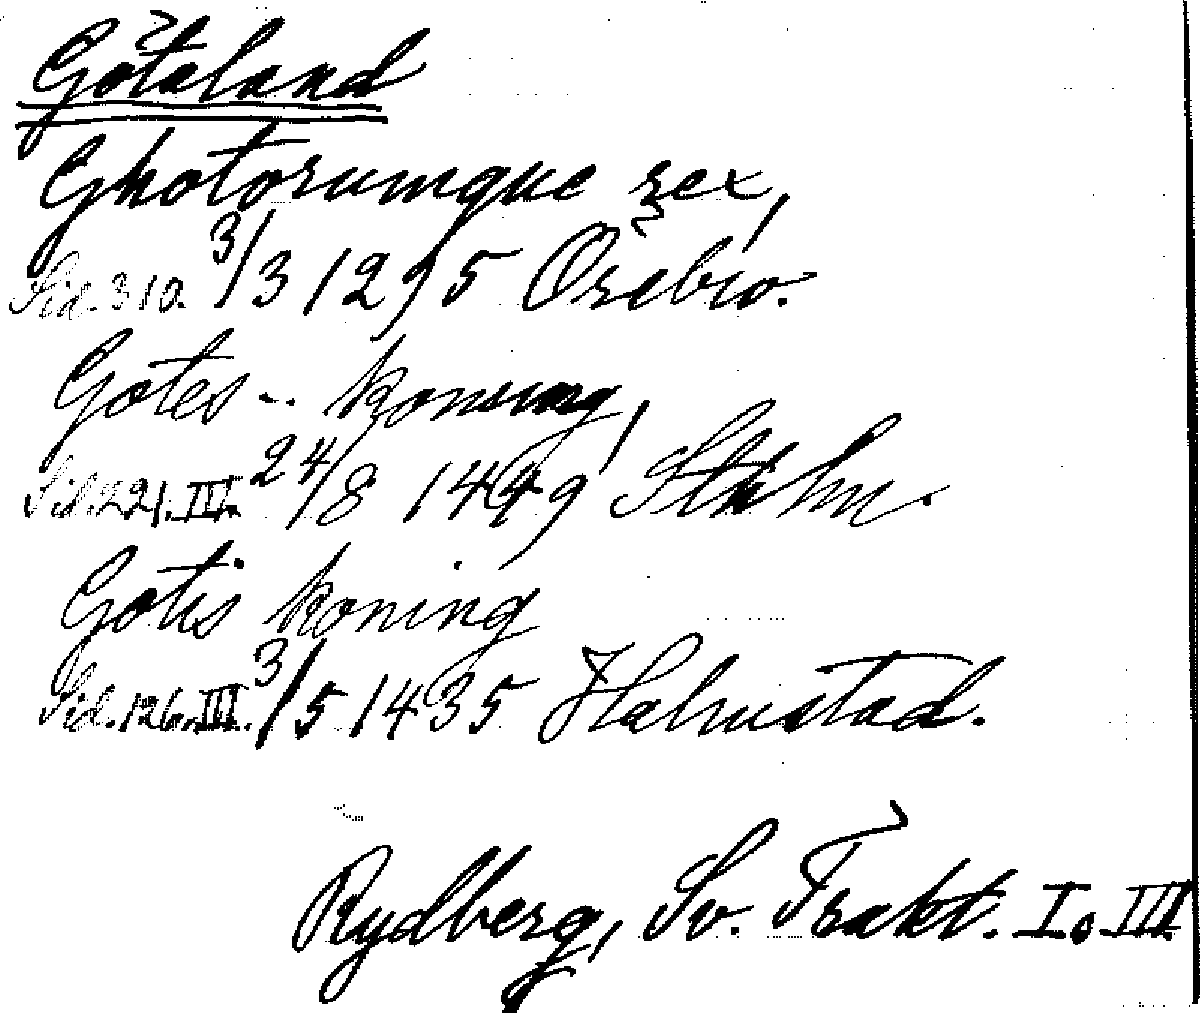 Götaland
Ghotorumque rex,
Sid. 310. 3/3 1295 Örebro.
Gotes -- konung,
Sid. 221. III. 24/8 1449 Sthlm.
Gotis koning
Sid. 126. III. 3/5 1435 Halmstad.
Rydberg, Sv. Trakt. I o III.